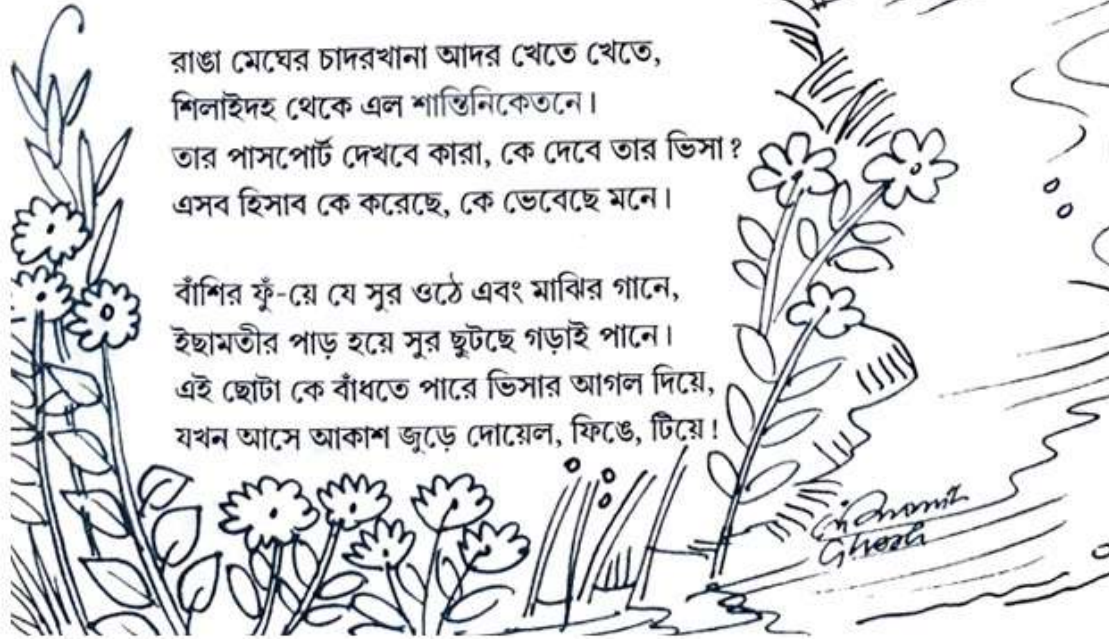 রাঙা মেঘের চাদরখানা আদর খেতে খেতে,
শিলাইদহ থেকে এল শান্তিনিকেতনে।
তার পাসপোর্ট দেখবে কারা, কে দেবে তার ভিসা?
এসব হিসাব কে করেছে, কে ভেবেছে মনে।
বাঁশির ফুঁ-য়ে যে সুর ওঠে এবং মাঝির গানে,
ইছামতীর পাড় হয়ে সুর ছুটছে গড়াই পানে।
এই ছোটা কে বাঁধতে পারে ভিসার আগল দিয়ে,
যখন আসে আকাশ জুড়ে দোয়েল, ফিঙে, টিয়ে!
Ghosh